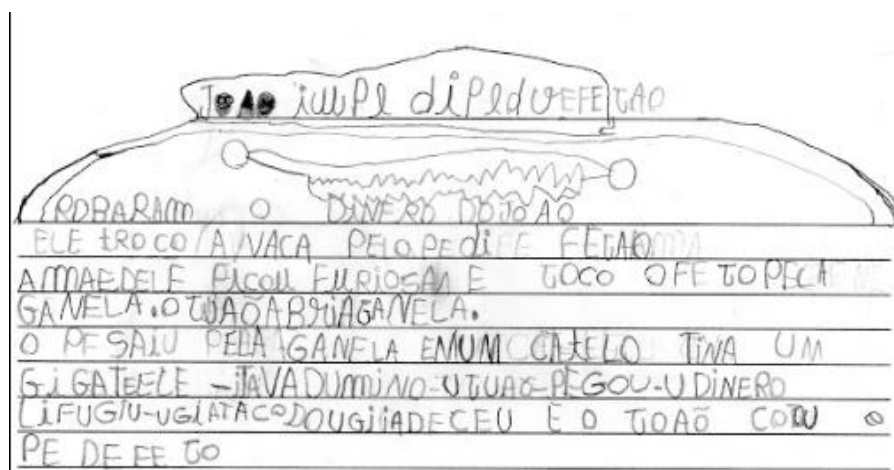 JOAO i uPE diPEdVEFEGAO
ROBARAM O DINERO DO JOAO
ELE tROCO A VACA PELO PE di FE FEGAO
A MAE DELE FICOU FURIOSA E GOCO O FE GO PELA
GANELA. O GUAÕ ABRIA GANELA.
O PE SAIU PELA GANELA EM UM CAtELO TINA UM
GiGATE ELE - iTAVA DUMiNO - U GUAO - PEGOU - U DINERO
LiFUGiU - UGiATACODO UGiIADECEU E O GOAÕ COTU O
PE DE FE GO